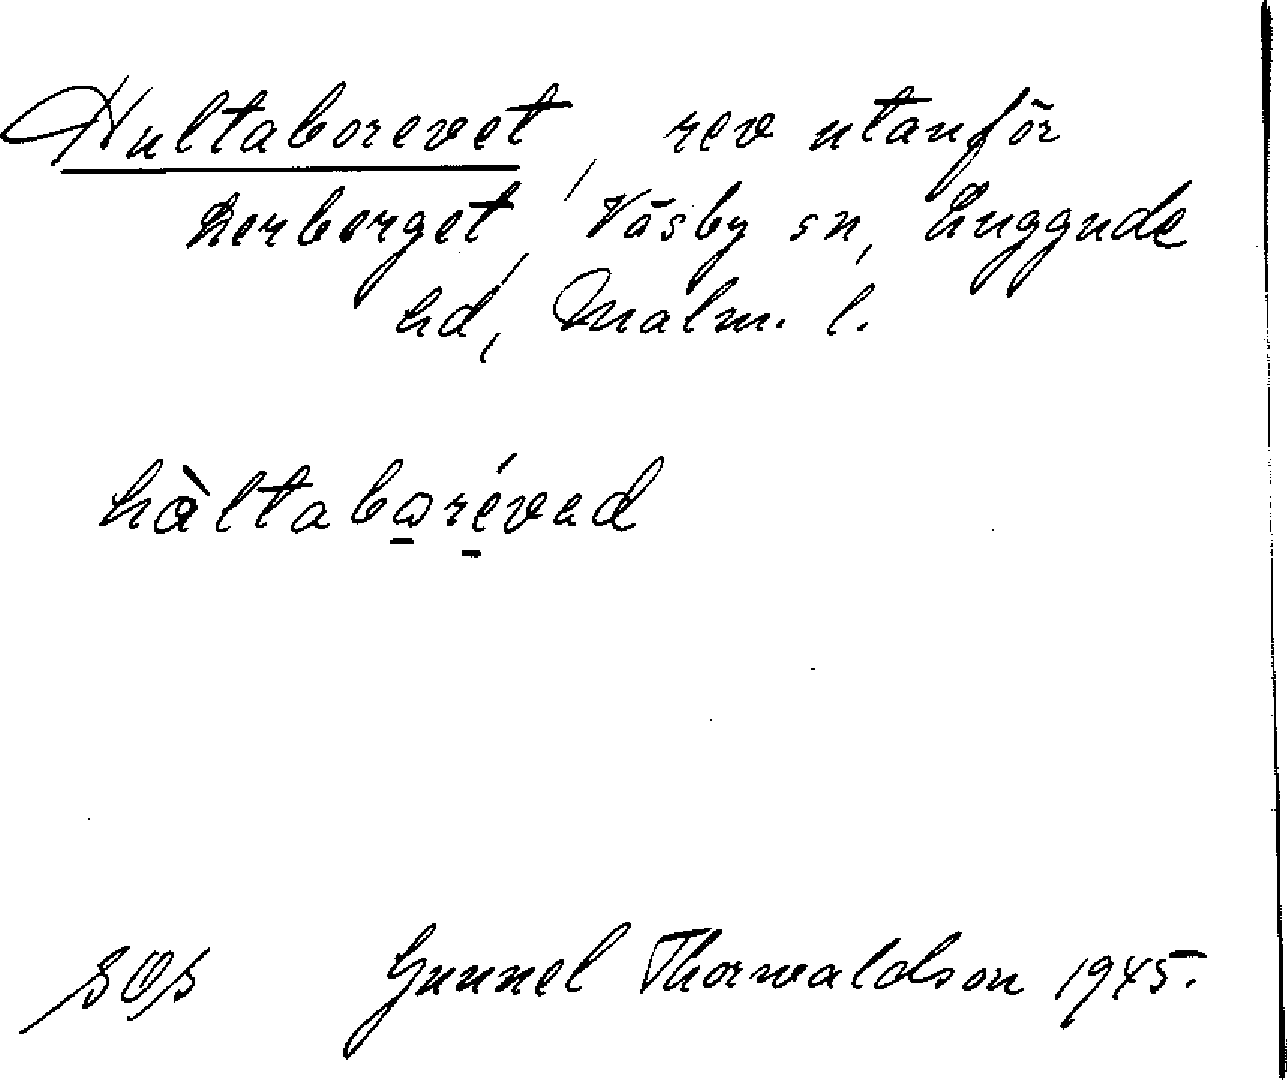 Hultaborevet, rev utanför
Lerberget, Väsby sn, Luggude
hd, Malm. l.
hàltabọrẹ́vad
SOS Gunnel Thorwaldson 1945.